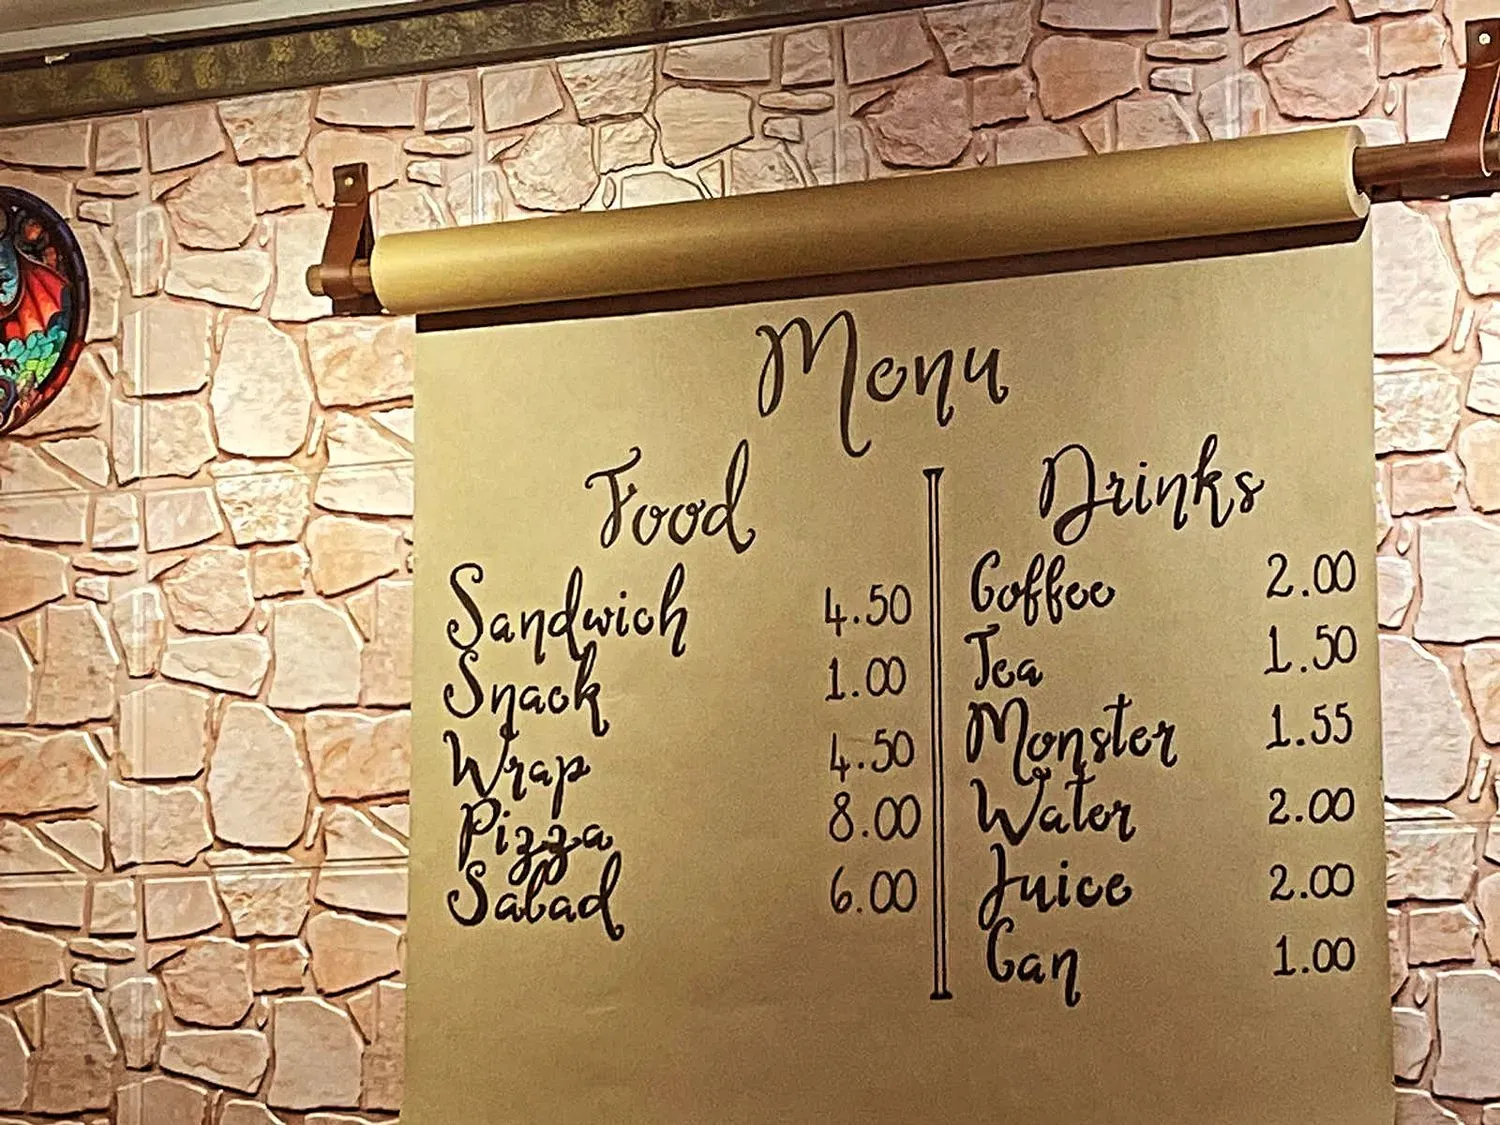 Menu
Food
Sandwich 4.50
Snack 1.00
Wrap 4.50
Pizza 8.00
Salad 6.00
Drinks
Coffee 2.00
Tea 1.50
Monster 1.55
Water 2.00
Juice 2.00
Can 1.00